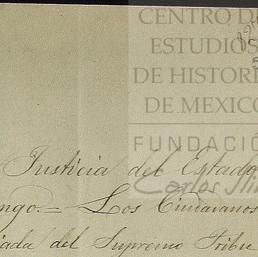 CENTRO DE
ESTUDIOS
DE HISTORI
DE MEXICO
FUNDACIÓ
Carlos Sli
Justicia del Estado
ngo.= Los Ciudadanos
iada del Supremo Tribu